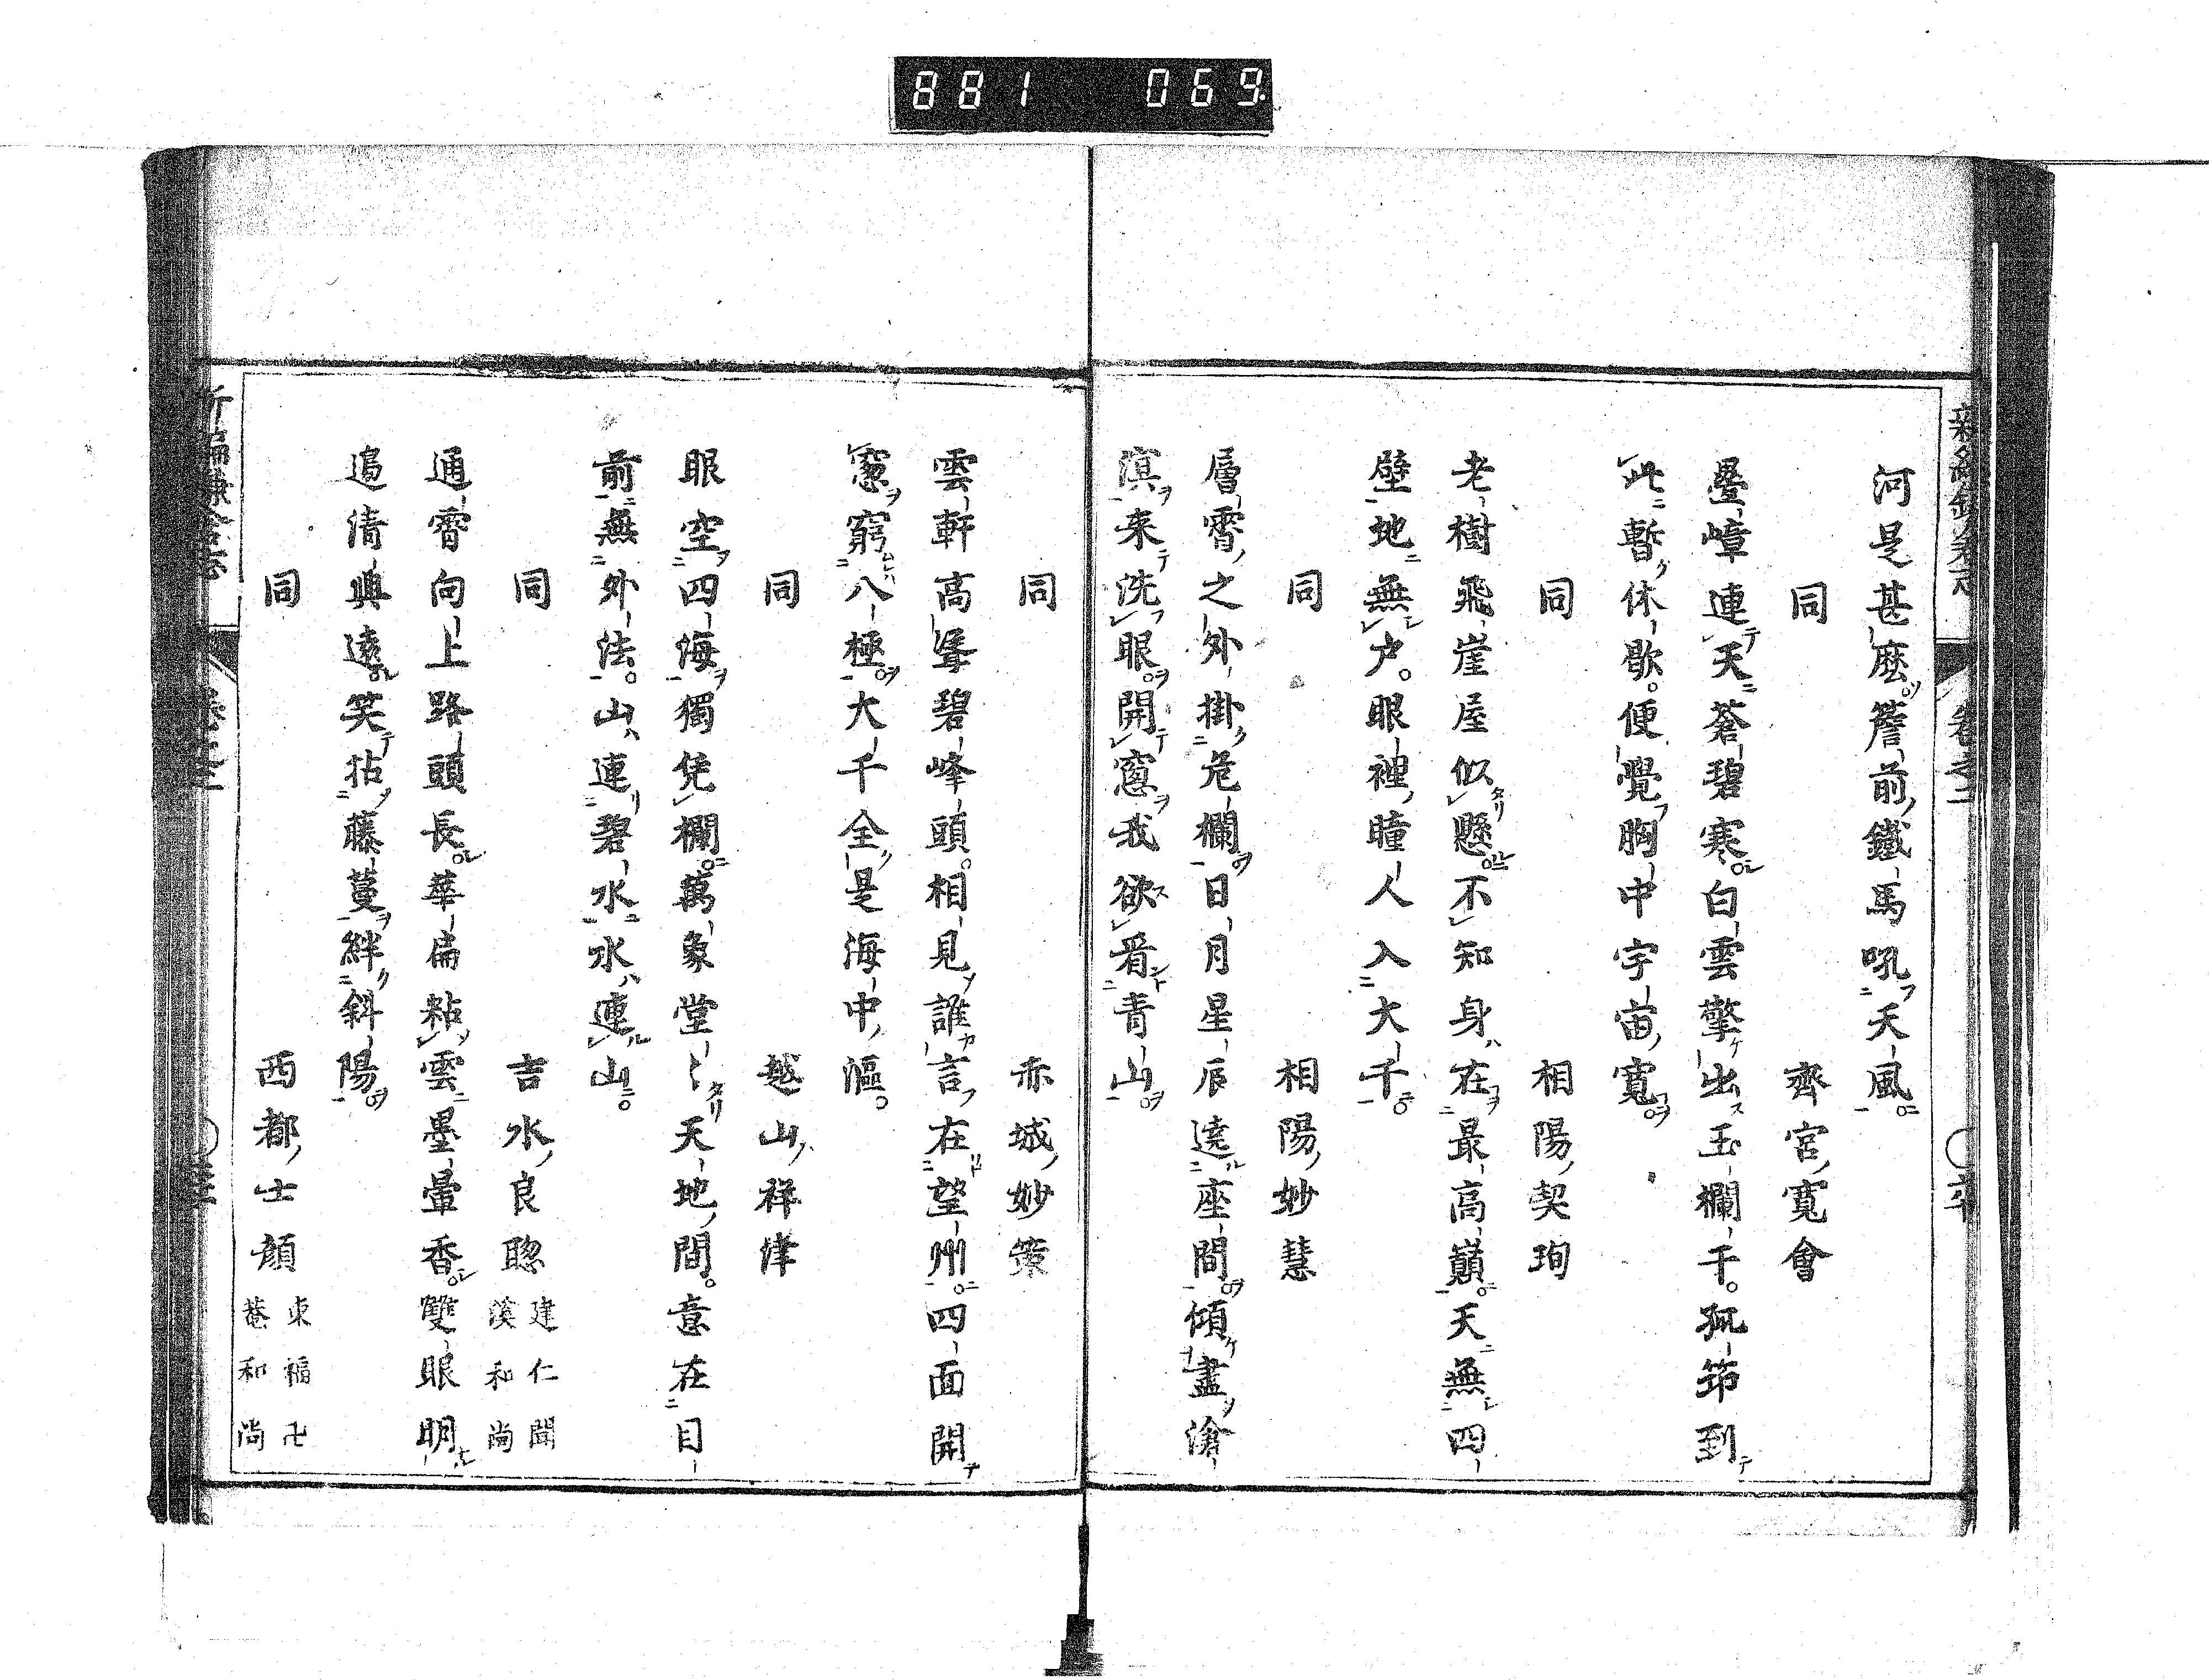 881 069
河是甚麽簷前鐵馬吼天風
同 齊宮寬會
疊嶂連天蒼碧寒白雲擎出玉欄干孤筇到
此暫休歇便覺胸中宇宙寬
同 相陽契珣
老樹飛崖屋似懸不知身在最高巓天無四
壁地無戶眼裡瞳人入大千
同 相陽妙慧
層霄之外掛危欄日月星辰遶座間傾盡滄
溟来洗眼開窓我欲看青山
同 赤城妙策
雲軒高聳碧峰頭相見誰言在望州四面開
窓窮八極大千全是海中漚
同 越山祥津
眼空四海獨凭欄萬象堂〻天地間意在目
前無外法山連碧水水連山
同 吉水良聰 建仁聞溪和尚
通霄向上路頭長華扁粘雲墨暈香雙眼明
邉清興遠笑拈藤蔓絆斜陽
同 西都士顔 東福卍菴和尚
新編鎌倉志 卷之三